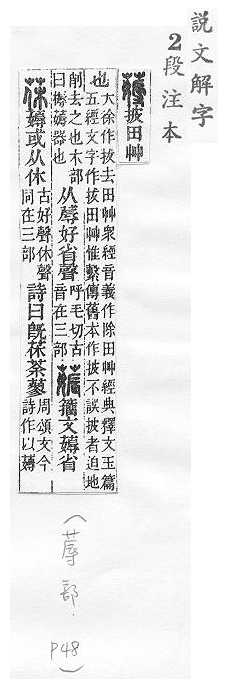 説文解字
2段注本
薅 披田艸
也 大徐作拔去田艸衆經音義作除田艸經典釋文玉篇
五經文字作拔田艸惟繫傳舊本作披不誤披者迫地
削去之也木部
曰槈薅器也
从蓐好省聲
呼毛切古
音在三部
籒文薅省
茠 薅或从休
古好聲休聲
同在三部
詩曰旣茠荼蓼
周頌文今
詩作以薅
(蓐部. P48)